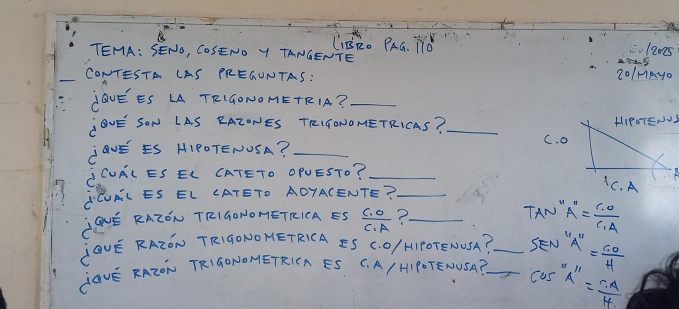 LIBRO PAG. 110
TEMA: SENO, COSENO Y TANGENTE
/2025
20/MAYO
CONTESTA LAS PREGUNTAS:
¿QUÉ ES LA TRIGONOMETRIA?____
¿QUÉ SON LAS RAZONES TRIGONOMETRICAS?____
¿QUÉ ES HIPOTENUSA?____
¿CUÁL ES EL CATETO OPUESTO?____
¿CUÁL ES EL CATETO ADYACENTE?____
¿QUÉ RAZÓN TRIGONOMETRICA ES C.O/C.A?____
¿QUÉ RAZÓN TRIGONOMETRICA ES C.O/HIPOTENUSA?____
¿QUÉ RAZÓN TRIGONOMETRICA ES C.A/HIPOTENUSA?____
HIPOTENUS
C.O
C.A
TAN "A" = C.O/C.A
SEN "A" = C.O/H
COS "A" = C.A/H